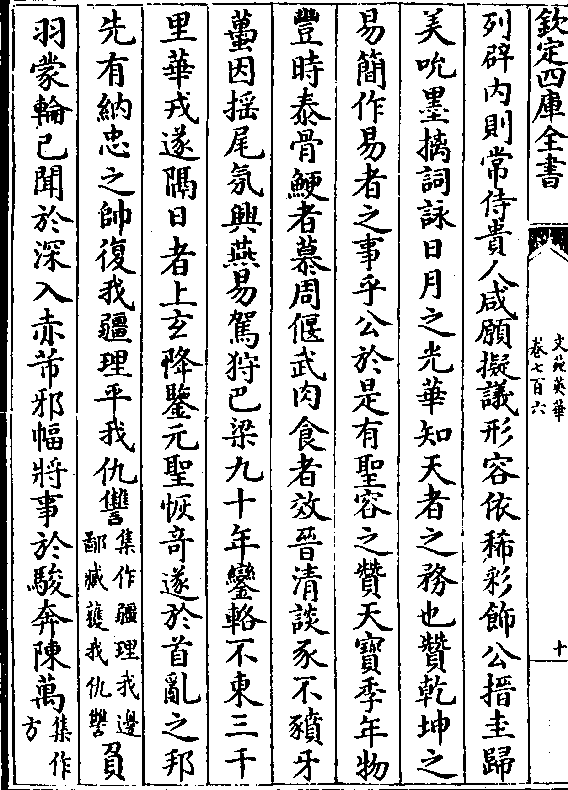 欽定四庫全書
文苑英華
卷七百六
十
列辟内則常侍貴人咸願擬議形容依稀彩飾公搢圭歸
美吮墨摛詞詠日月之光華知天者之務也贊乾坤之
易簡作易者之事乎公於是有聖容之贊天寶季年物
豐時泰骨鯁者慕周偃武肉食者效晉清談豕不豶牙
蠆因揺尾氛興燕易駕狩巴梁九十年鑾輅不東三千
里華戎遂隅日者上玄降鑒元聖恢竒遂於首亂之邦
先有納忠之帥復我疆理平我仇讐集作疆理我邊鄙臧䕶我仇讐負
羽蒙輪已聞於深入赤芾邪幅將事於駿奔陳萬集作方